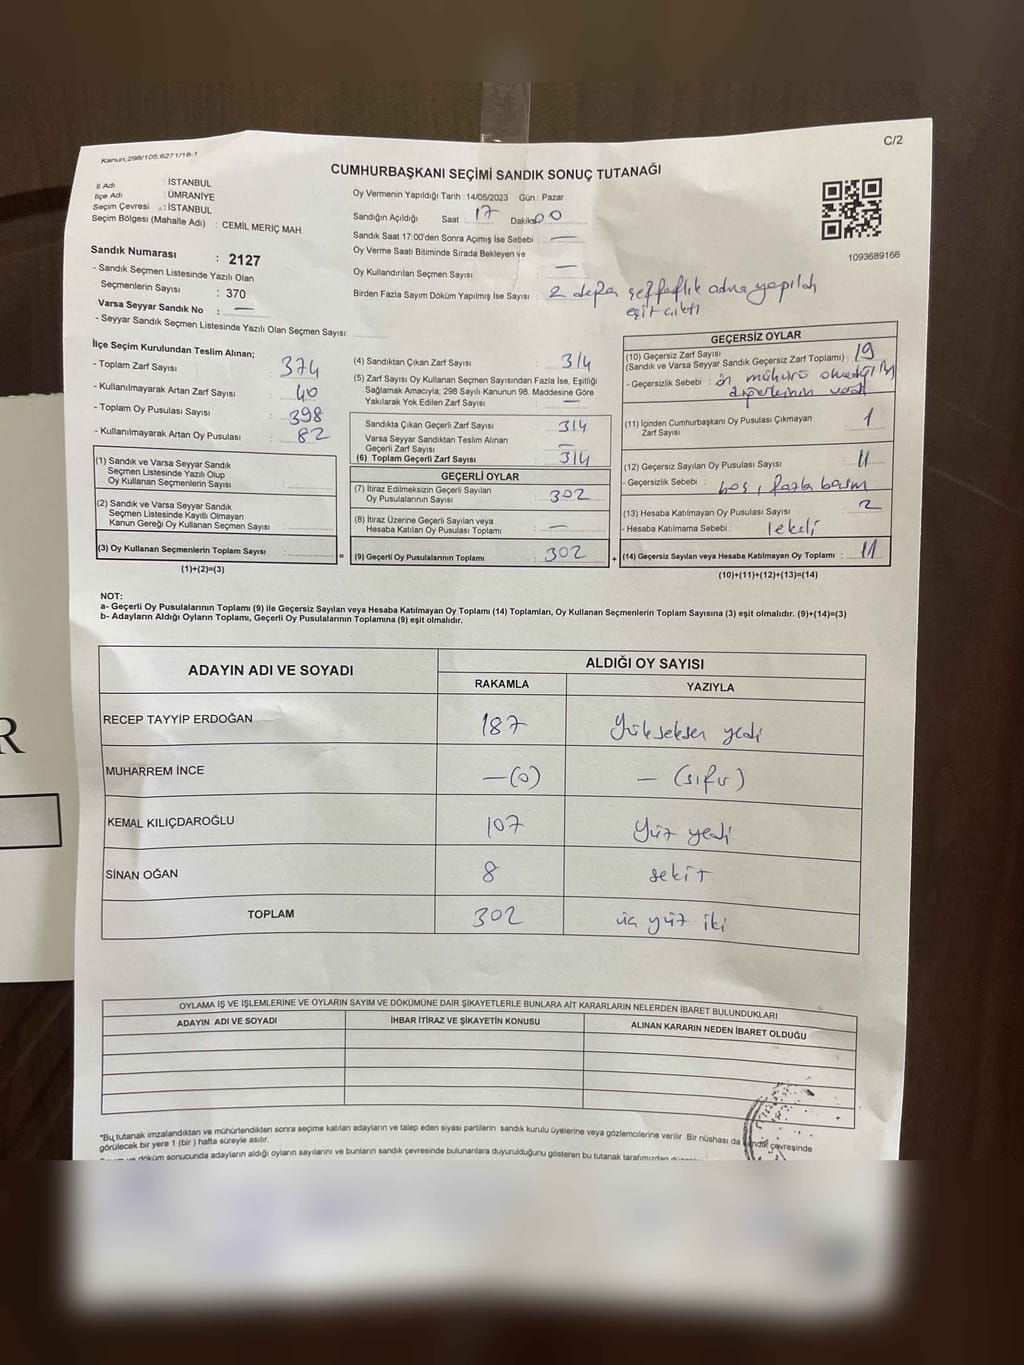 C/2
Kanun, 298/105,6271/18-1
CUMHURBAŞKANI SEÇİMİ SANDIK SONUÇ TUTANAĞI
İl Adı : İSTANBUL
İlçe Adı : ÜMRANİYE
Seçim Çevresi : İSTANBUL
Seçim Bölgesi (Mahalle Adı) : CEMİL MERİÇ MAH.
Sandık Numarası : 2127
- Sandık Seçmen Listesinde Yazılı Olan
Seçmenlerin Sayısı : 370
Varsa Seyyar Sandık No : —
- Seyyar Sandık Seçmen Listesinde Yazılı Olan Seçmen Sayısı:
Oy Vermenin Yapıldığı Tarih : 14/05/2023 Gün : Pazar
Sandığın Açıldığı Saat : 17 Dakika 00
Sandık Saat 17:00'den Sonra Açımış İse Sebebi : —
Oy Verme Saati Bitiminde Sırada Bekleyen ve
Oy Kullandırılan Seçmen Sayısı —
Birden Fazla Sayım Döküm Yapılmış İse Sayısı : 2 defa şeffaflık adına yapıldı
eşit çıktı
1093689166
İlçe Seçim Kurulundan Teslim Alınan;
- Toplam Zarf Sayısı : 374
- Kullanılmayarak Artan Zarf Sayısı : 40
- Toplam Oy Pusulası Sayısı : 398
- Kullanılmayarak Artan Oy Pusulası : 82
(1) Sandık ve Varsa Seyyar Sandık
Seçmen Listesinde Yazılı Olup
Oy Kullanan Seçmenlerin Sayısı :
(2) Sandık ve Varsa Seyyar Sandık
Seçmen Listesinde Kayıtlı Olmayan
Kanun Gereği Oy Kullanan Seçmen Sayısı :
(3) Oy Kullanan Seçmenlerin Toplam Sayısı : =
(1)+(2)=(3)
(4) Sandıktan Çıkan Zarf Sayısı : 314
(5) Zarf Sayısı Oy Kullanan Seçmen Sayısından Fazla İse, Eşitliği
Sağlamak Amacıyla, 298 Sayılı Kanunun 98. Maddesine Göre
Yakılarak Yok Edilen Zarf Sayısı : —
Sandıkta Çıkan Geçerli Zarf Sayısı : 314
Varsa Seyyar Sandıktan Teslim Alınan
Geçerli Zarf Sayısı : —
(6) Toplam Geçerli Zarf Sayısı : 314
GEÇERLİ OYLAR
(7) İtiraz Edilmeksizin Geçerli Sayılan
Oy Pusulalarının Sayısı : 302
(8) İtiraz Üzerine Geçerli Sayılan veya
Hesaba Katılan Oy Pusulası Toplamı : —
(9) Geçerli Oy Pusulalarının Toplamı : 302 +
GEÇERSİZ OYLAR
(10) Geçersiz Zarf Sayısı
(Sandık ve Varsa Seyyar Sandık Geçersiz Zarf Toplamı) : 19
- Geçersizlik Sebebi : ön mühürü olmadığı
diğerlerinin
(11) İçinden Cumhurbaşkanı Oy Pusulası Çıkmayan
Zarf Sayısı : 1
(12) Geçersiz Sayılan Oy Pusulası Sayısı : 11
- Geçersizlik Sebebi : boş, fazla basım
(13) Hesaba Katılmayan Oy Pusulası Sayısı : 2
- Hesaba Katılmama Sebebi : lekeli
(14) Geçersiz Sayılan veya Hesaba Katılmayan Oy Toplamı : 11
(10)+(11)+(12)+(13)=(14)
NOT:
a- Geçerli Oy Pusulalarının Toplamı (9) ile Geçersiz Sayılan veya Hesaba Katılmayan Oy Toplamı (14) Toplamları, Oy Kullanan Seçmenlerin Toplam Sayısına (3) eşit olmalıdır. (9)+(14)=(3)
b- Adayların Aldığı Oyların Toplamı, Geçerli Oy Pusulalarının Toplamına (9) eşit olmalıdır.
ADAYIN ADI VE SOYADI ALDIĞI OY SAYISI
RAKAMLA YAZIYLA
RECEP TAYYİP ERDOĞAN 187 Yüzseksen yedi
MUHARREM İNCE —(0) — (sıfır)
KEMAL KILIÇDAROĞLU 107 Yüz yedi
SİNAN OĞAN 8 sekiz
TOPLAM 302 üç yüz iki
OYLAMA İŞ VE İŞLEMLERİNE VE OYLARIN SAYIM VE DÖKÜMÜNE DAİR ŞİKAYETLERLE BUNLARA AİT KARARLARIN NELERDEN İBARET BULUNDUKLARI
ADAYIN ADI VE SOYADI İHBAR İTİRAZ VE ŞİKAYETİN KONUSU ALINAN KARARIN NEDEN İBARET OLDUĞU
*Bu tutanak imzalandıktan ve mühürlendikten sonra seçime katılan adayların ve talep eden siyasi partilerin sandık kurulu üyelerine veya gözlemcilerine verilir. Bir nüshası da sandık çevresinde
görülecek bir yere 1 (bir) hafta süreyle asılır.
döküm sonucunda adayların aldığı oyların sayılarını ve bunların sandık çevresinde bulunanlara duyurulduğunu gösteren bu tutanak tarafımızdan
R